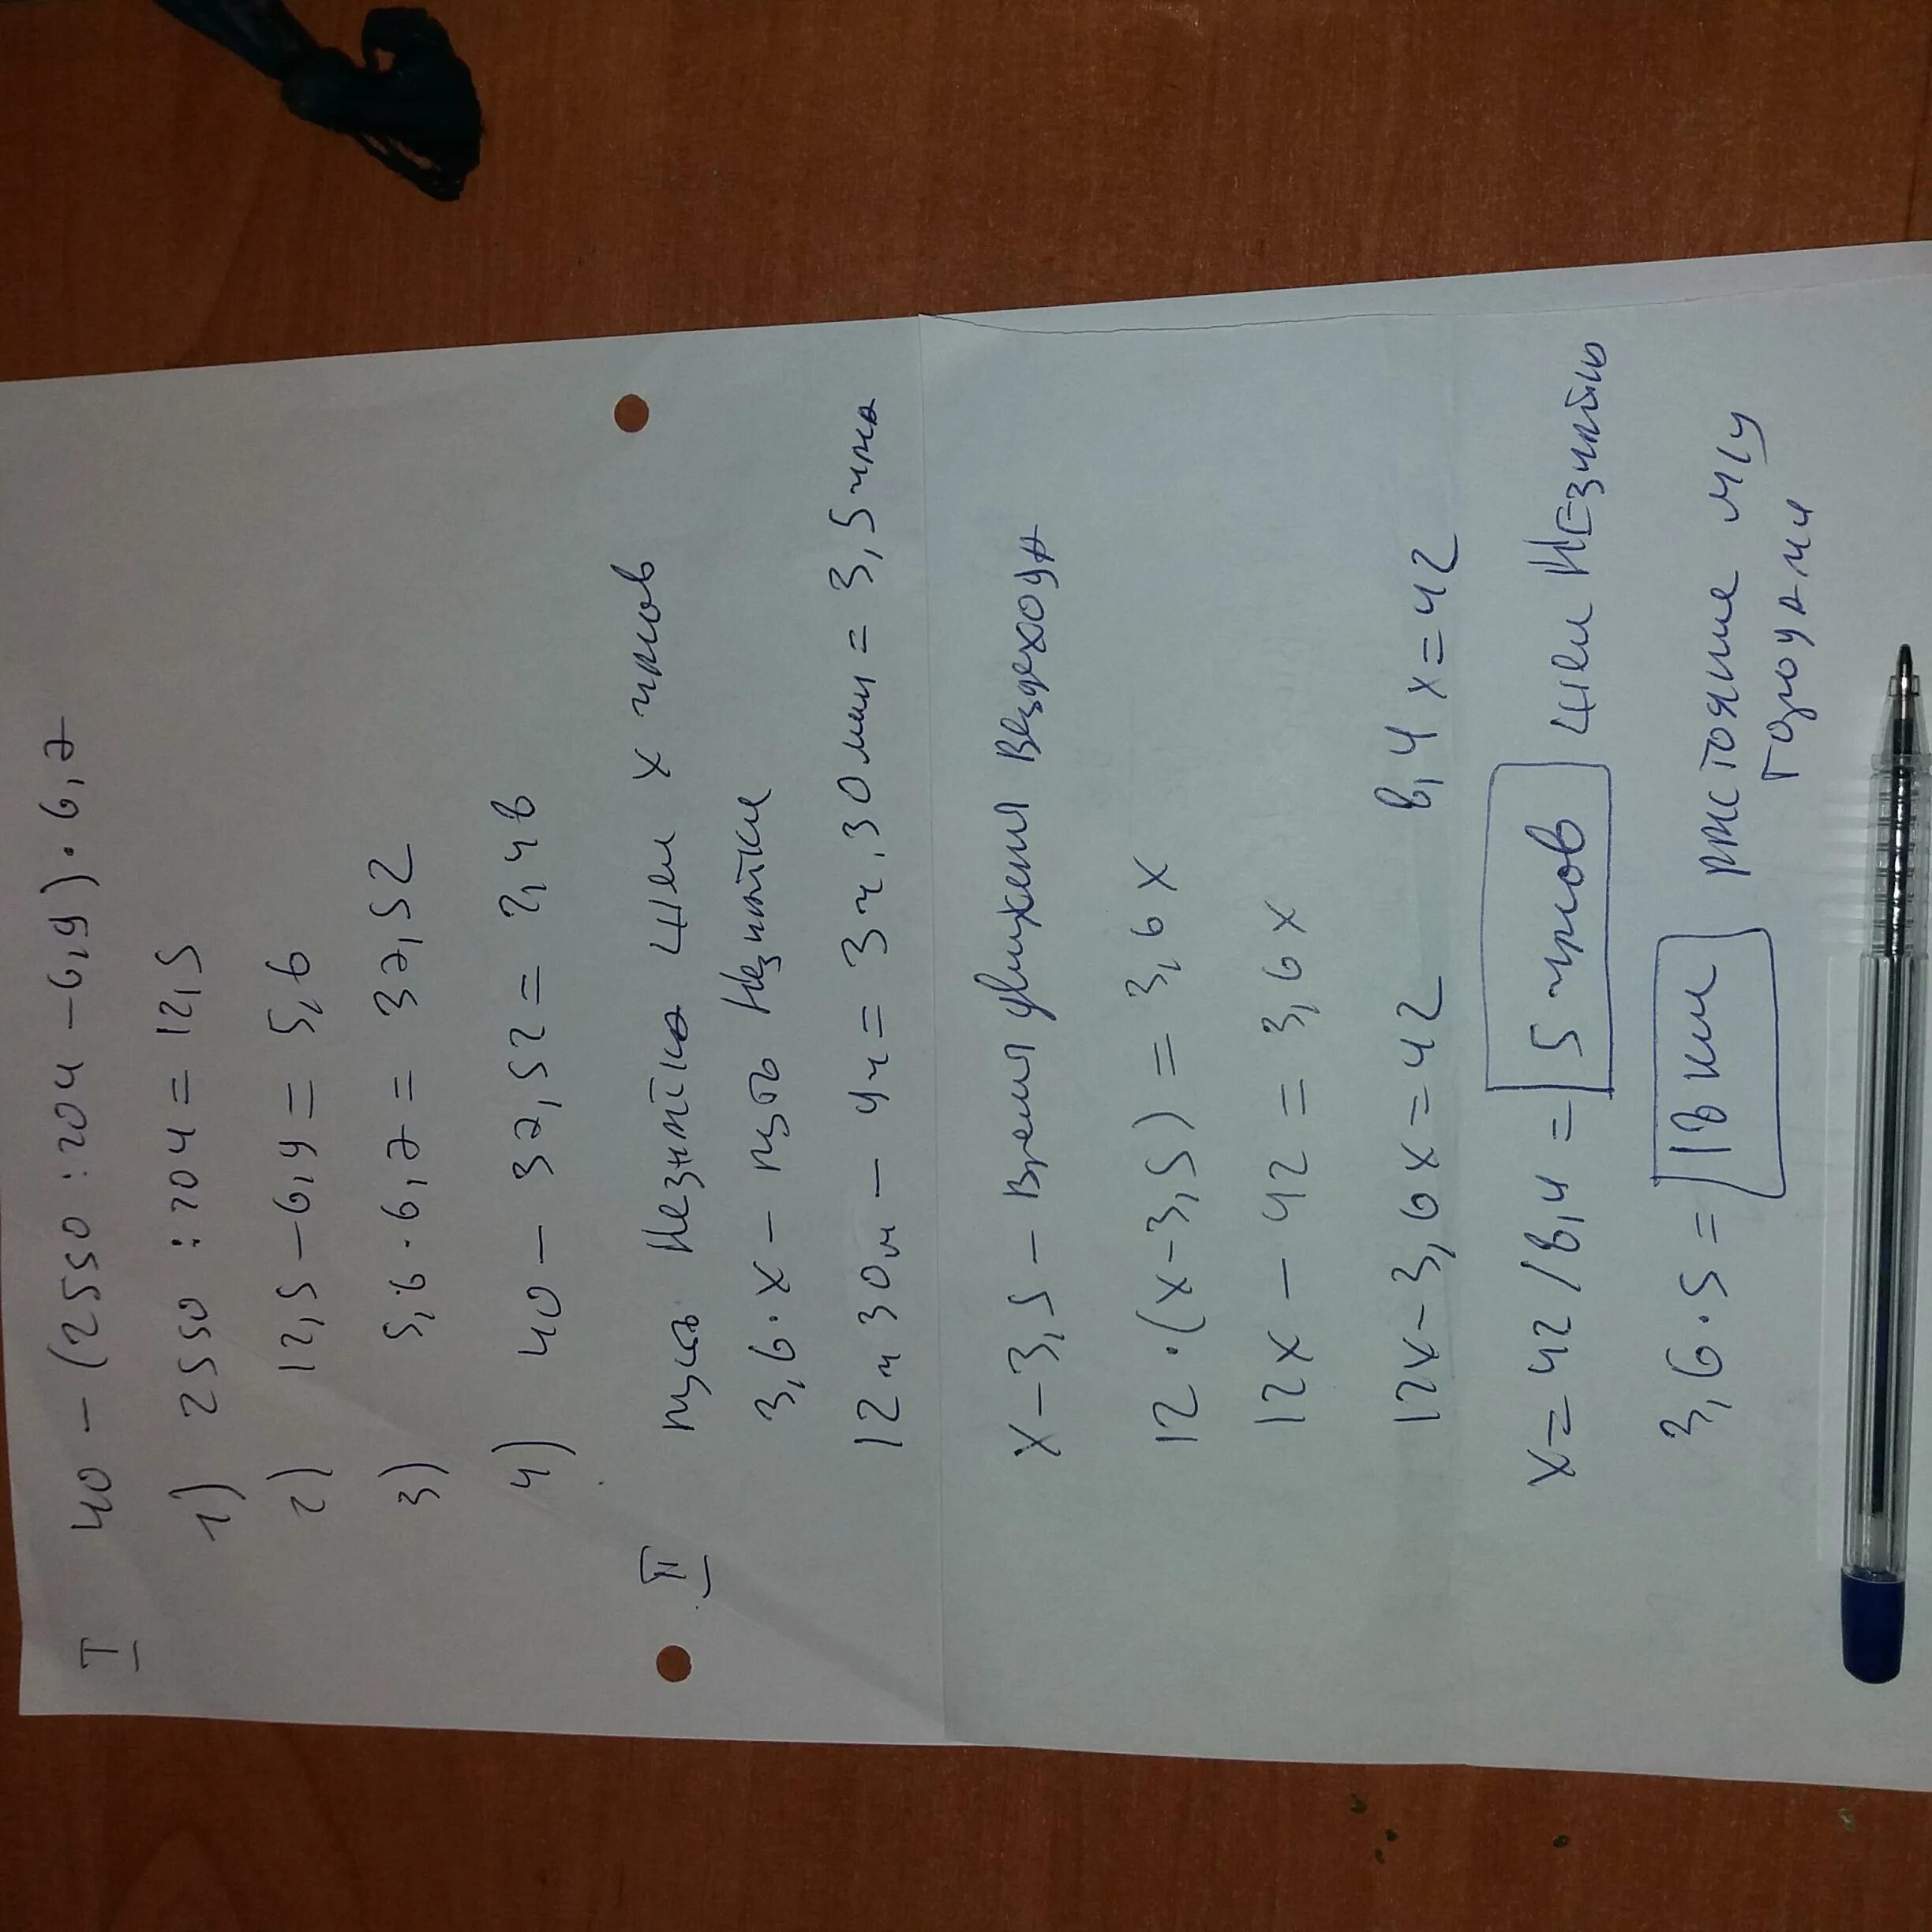 I 40 - (2550 : 204 - 6,9) · 6,7
1) 2550 : 204 = 12,5
2) 12,5 - 6,9 = 5,6
3) 5,6 · 6,7 = 37,52
4) 40 - 37,52 = 2,48
II пусть Незнайка шел x часов
3,6 · x - путь Незнайки
12 ч 30 м - 9ч = 3ч.30мин = 3,5 часа
x - 3,5 - Время движения Вездехода
12 · (x - 3,5) = 3,6x
12x - 42 = 3,6x
12x - 3,6x = 42 8,4x = 42
x = 42 / 8,4 = 5 часов шел НЕзнайка
3,6 · 5 = 18 км расстояние м/у
городами